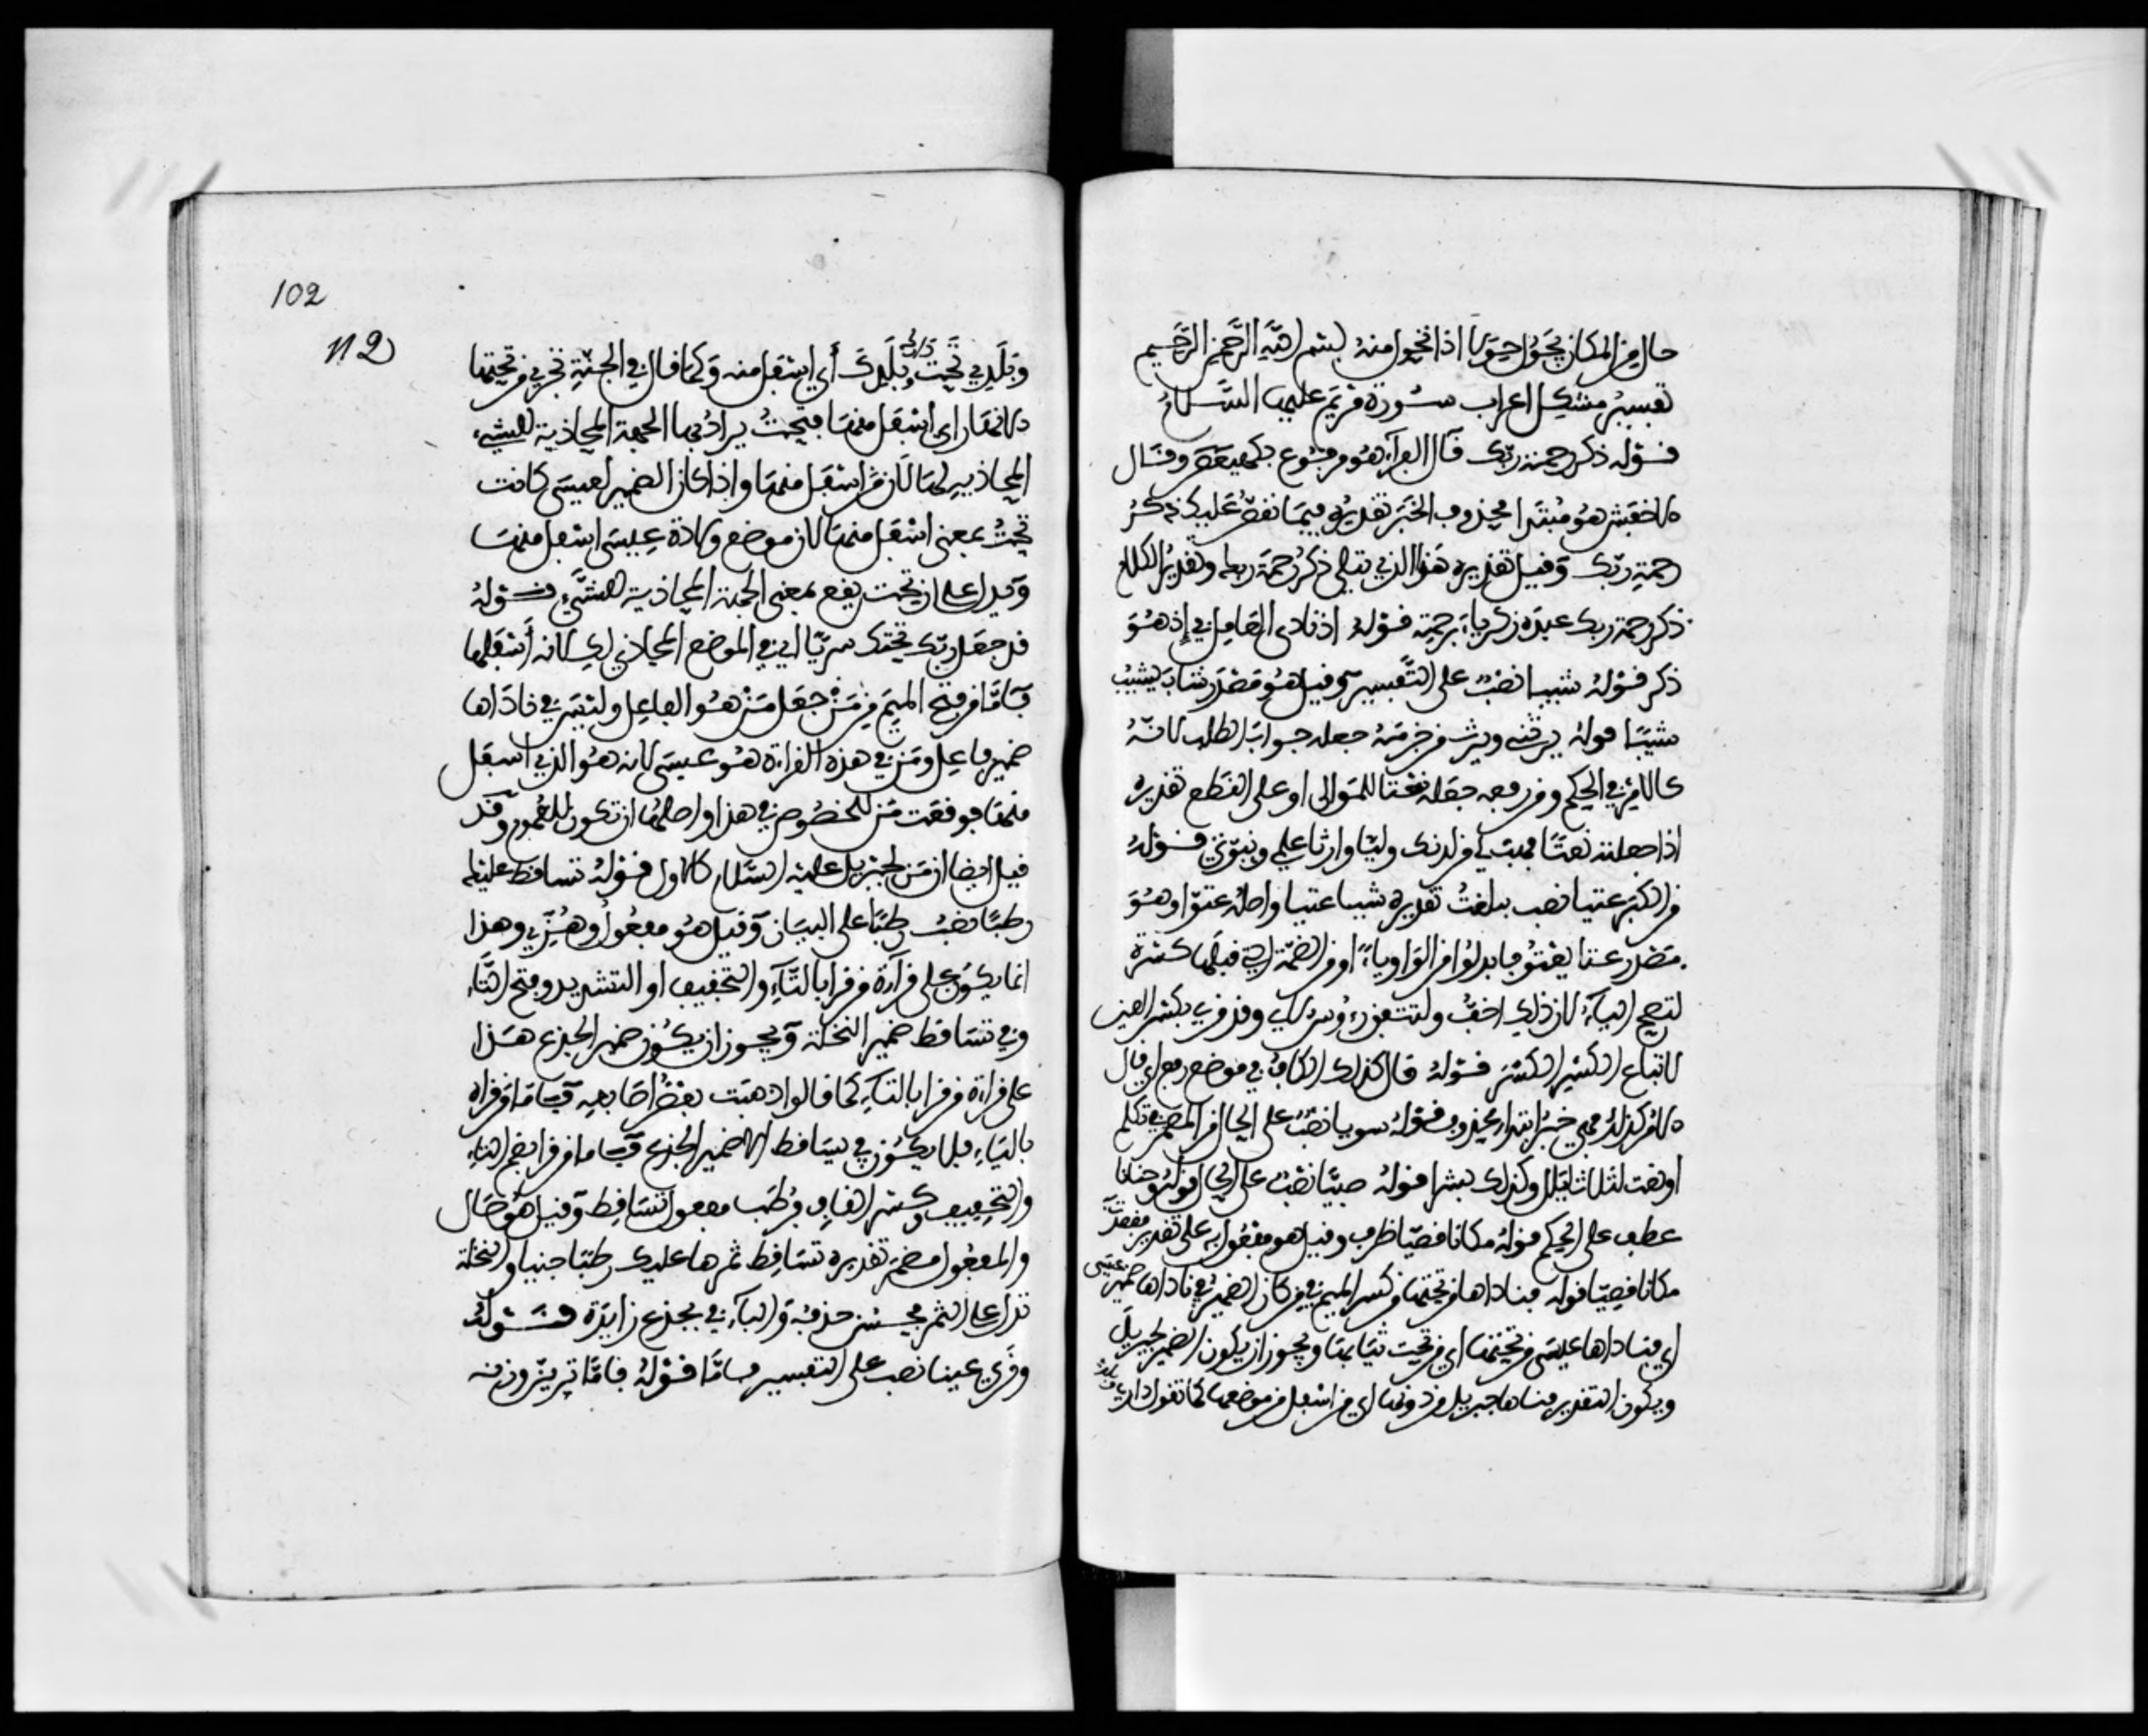 حال من المكان يحول حولا اذا تحول منه بسم الله الرحمن الرحيم
تفسير مشكل اعراب سورة مريم عليها السلام
قوله ذكر رحمة ربك قال الفراء هو مرفوع بكهيعص وقال
الاخفش هو مبتدا محذوف الخبر تقديره فيما نقص عليك ذكر
رحمة ربك وقيل تقديره هذا الذي يتلى ذكر رحمة ربك وتقدير الكلام
ذكر رحمة ربك عبده زكرياء برحمة قوله اذ نادى العامل في إذ هو
ذكر قوله شيبا نصب على التفسير وقيل هو مصدر شاب يشيب
شيبا قوله يرثني ويرث من جزمه جعله جواب الطلب لانه
كالامر في الحكم ومن رفعه جعله نعتا للموالي او على القطع تقديره
اذا جعلته نعتا فهب لي من لدنك وليا وارثا علمي ونبوتي قوله
من الكبر عتيا نصب ببلغت تقديره شيبا عتيا واصله عتوا وهو
مصدر عتا يعتو فابدلوا من الواو ياء او من الضمة التي قبلها كسرة
لتصح الياء لان ذلك اخف ولتتفق رءوس الاي وقد قرئ بكسر العين
لاتباع الكسر الكسر قوله قال كذلك الكاف في موضع رفع اي قال
الامر كذلك فهي خبر ابتداء محذوف قوله سويا نصب على الحال من المضمر في تكلم
او نعت لثلاث ليال وكذلك بشرا قوله صبيا نصب على الحال قوله وحنانا
عطف على الحكم قوله مكانا قصيا ظرف وقيل هو مفعول به على تقدير فقصدت
مكانا قصيا قوله فناداها من تحتها من كسر الميم في من كان الضمير في ناداها ضمير عيسى
اي فناداها عيسى من تحتها اي من تحت ثيابها ويجوز ان يكون الضمير لجبريل
ويكون التقدير فناداها جبريل من دونها اي من اسفل من موضعها كما تقول داري تحت دارك
102
112
وبلدي تحت بلدك أي اسفل منه وكما قال في الجنة تجري من تحتها
الانهار اي اسفل منها فتحت يراد بها الجهة المحاذية للشيء
المحاذيير لها لان من اسفل منها واذا كان الضمير لعيسى كانت
تحت بمعنى اسفل منها لان موضع ولادة عيسى اسفل منها
ويدل على ان تحت يقع بمعنى الجهة المحاذية للشيء قوله
قد جعل ربك تحتك سريا اي في الموضع المحاذي لك لانه أسفلها
فاما من فتح الميم من من جعل من هو الفاعل وليس في ناداها
ضمير فاعل ومن في هذه القراءة هو عيسى لانه هو الذي اسفل
منها فوقعت من للخصوص في هذا واصلها ان تكون للعموم وقد
قيل ايضا ان من لجبريل عليه السلام كالاول قوله تساقط عليك
رطبا نصب رطبا على البيان وقيل هو مفعول وهزي وهذا
انما يكون على قراءة من قرا بالتاء والتخفيف او التشديد وفتح التاء
وفي تساقط ضمير النخلة ويجوز ان يكون ضمير الجذع هذا
على قراءة من قرا بالتاء كما قالوا ذهبت بعض اصابعه فاما من قراه
بالياء فلا يكون في يساقط الا ضمير الجذع فاما من قرا بضم التاء
والتخفيف وكسر القاف فرطب مفعول تساقط وقيل هو حال
والمفعول مضمر تقديره تساقط ثمرها عليك رطبا جنيا والنخلة
تدل على الثمر فحسن حذفه والباء في بجذع زايدة قوله
وقري عينا نصب على التفسير فاما قوله فاما ترين وزنه